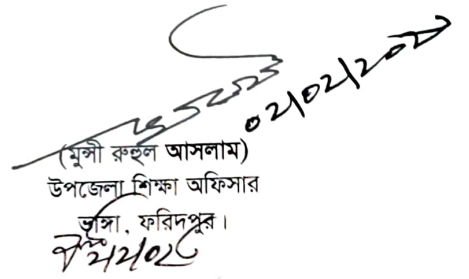 ০২/০২/২০২
(মুন্সী রুহুল আসলাম)
উপজেলা শিক্ষা অফিসার
ভাঙ্গা, ফরিদপুর।